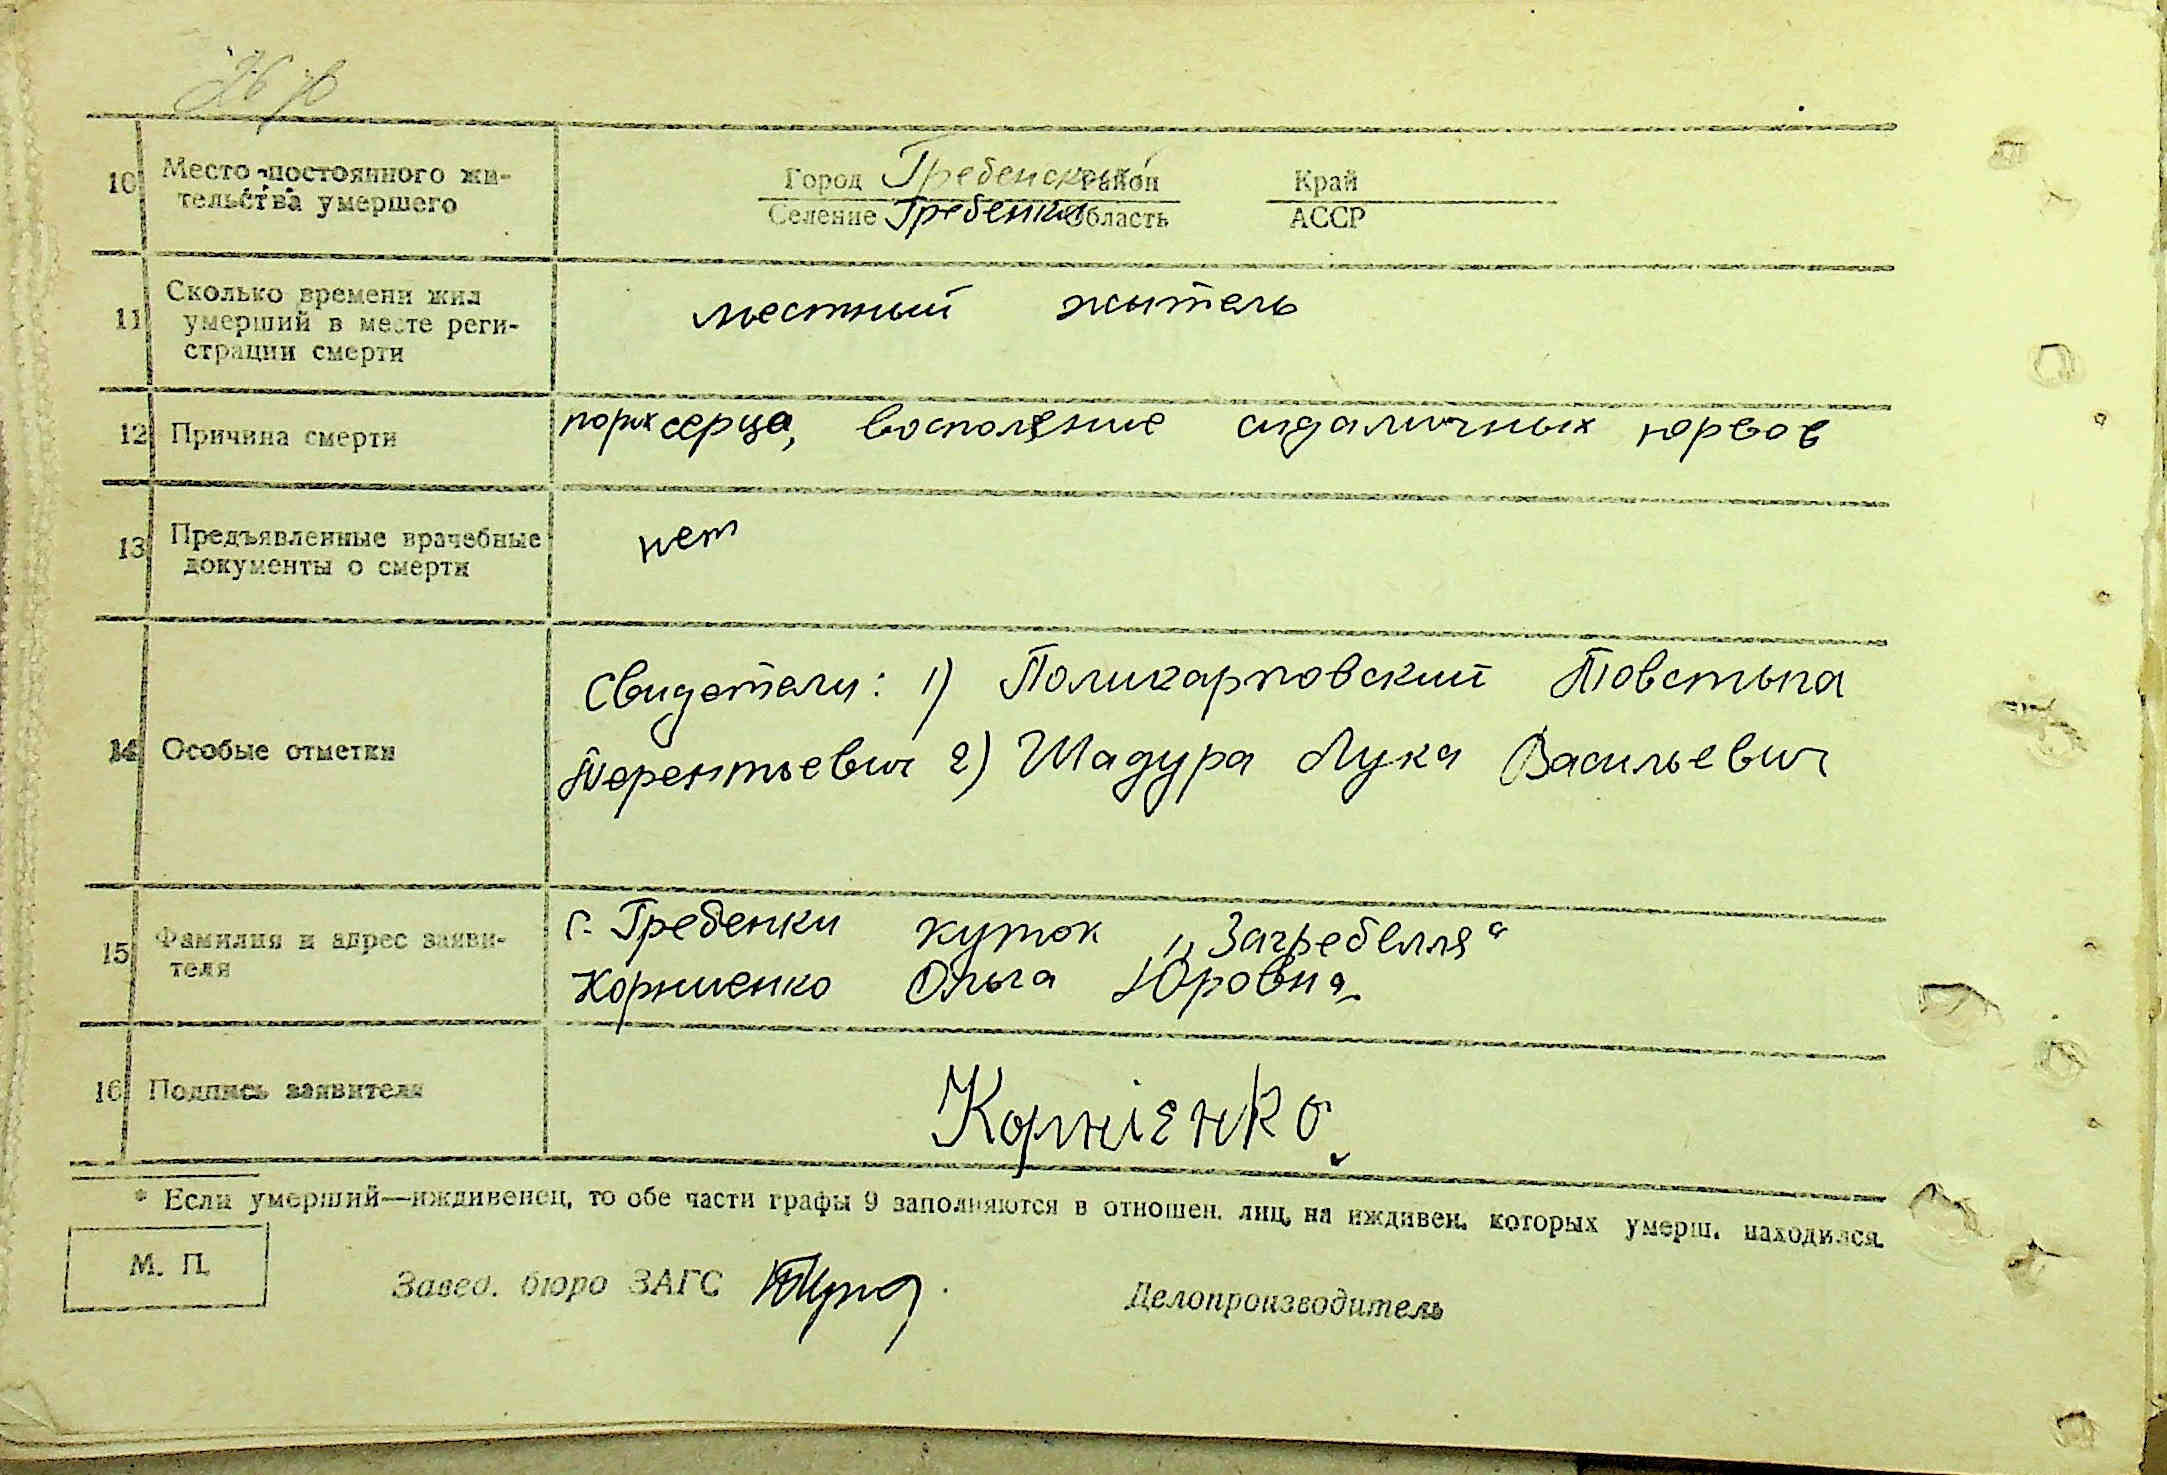 10 Место постоянного жи- Город Гребенский район Край
тельства умершего Селение Гребенки область АССР
11 Сколько времени жил
умерший в месте реги-
страции смерти
местный житель
12 Причина смерти порок серца, восполение сидаличных нервов
13 Предъявленные врачебные
документы о смерти
нет
14 Особые отметки
Свидетели: 1) Поликарповский Товстыпа
Терентьевич 2) Шадура Лука Васильевич
15 Фамилия и адрес заяви-
теля
с. Гребенки куток „Загребелля“
Корниенко Ольга Юровна
16 Подпись заявителя Корнієнко
* Если умерший—иждивенец, то обе части графы 9 заполняются в отношен. лиц, на иждивен. которых умерш. находился.
М. П.
Завед. бюро ЗАГС Делопроизводитель